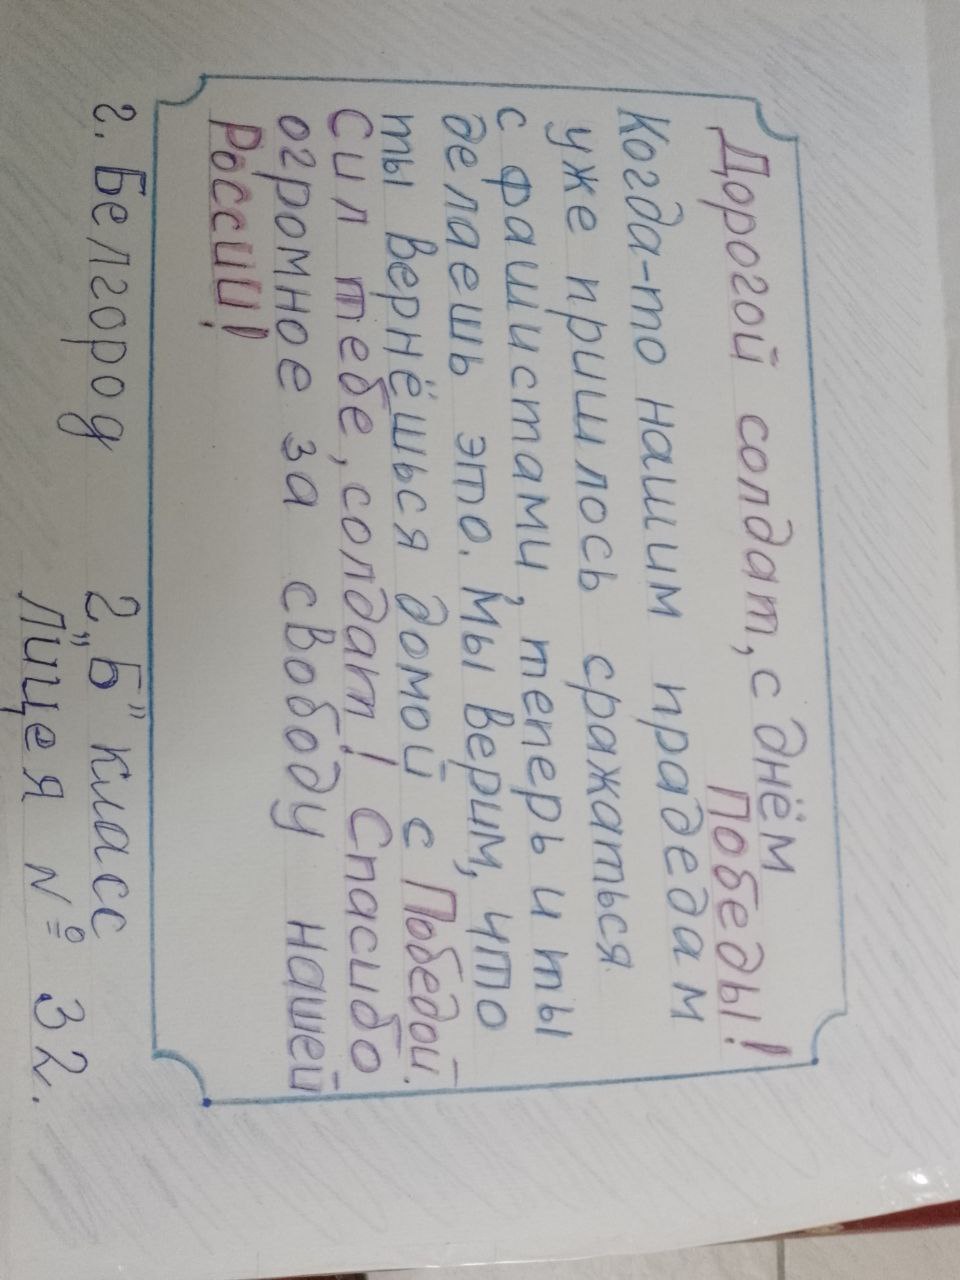 Дорогой солдат, с днём
Победы!
Когда-то нашим прадедам
уже пришлось сражаться
с фашистами, теперь и ты
делаешь это. Мы верим, что
ты вернёшься домой с Победой.
Сил тебе, солдат! Спасибо
огромное за свободу нашей
России!
г. Белгород 2 „Б" класс
Лицея № 32.